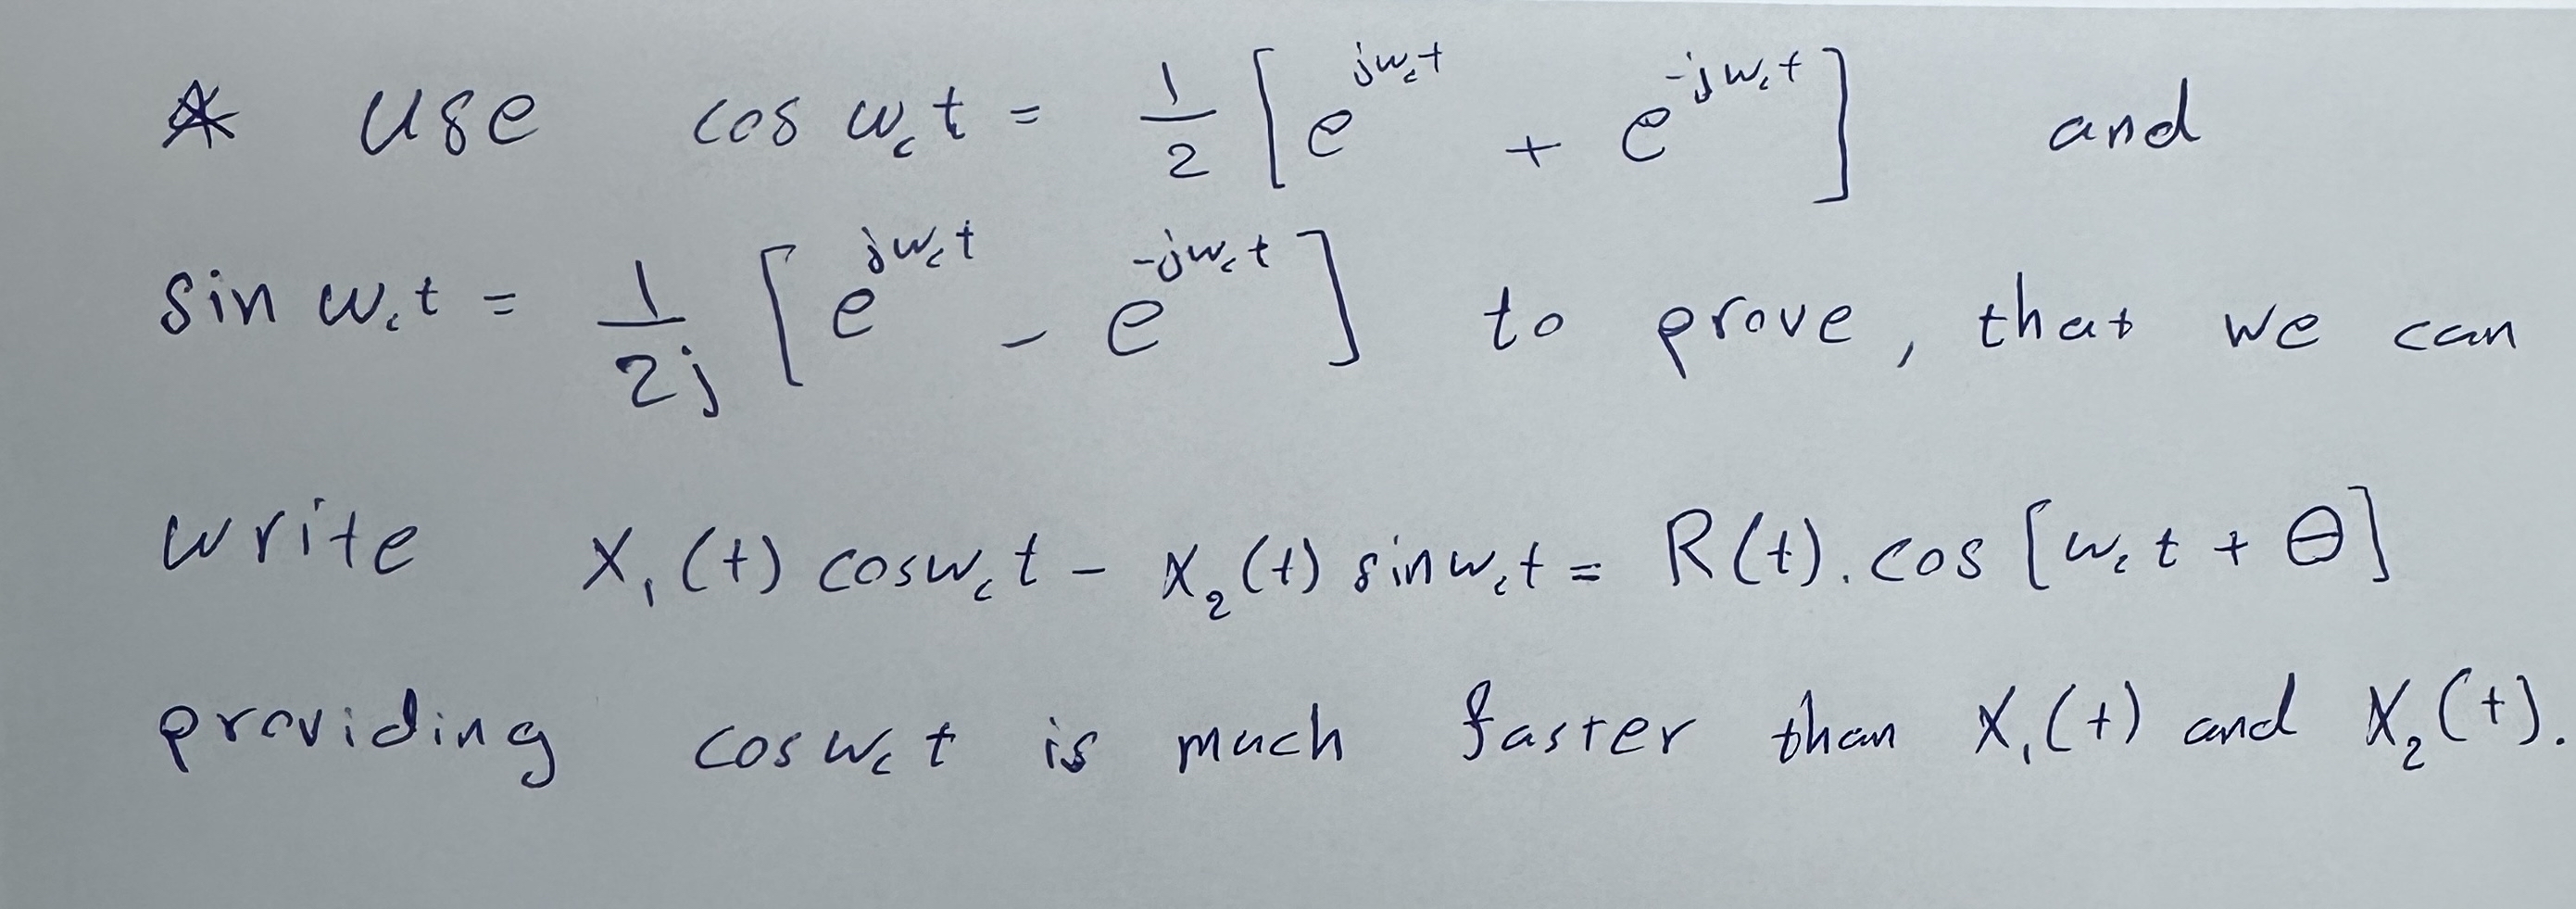 * Use cos w_c t = 1/2 [e^{jw_c t} + e^{-jw_c t}] and
sin w_c t = 1/2j [e^{jw_c t} - e^{-jw_c t}] to prove, that we can
write X_1(t) cos w_c t - X_2(t) sin w_c t = R(t). cos [w_c t + θ]
providing cos w_c t is much faster than X_1(t) and X_2(t).